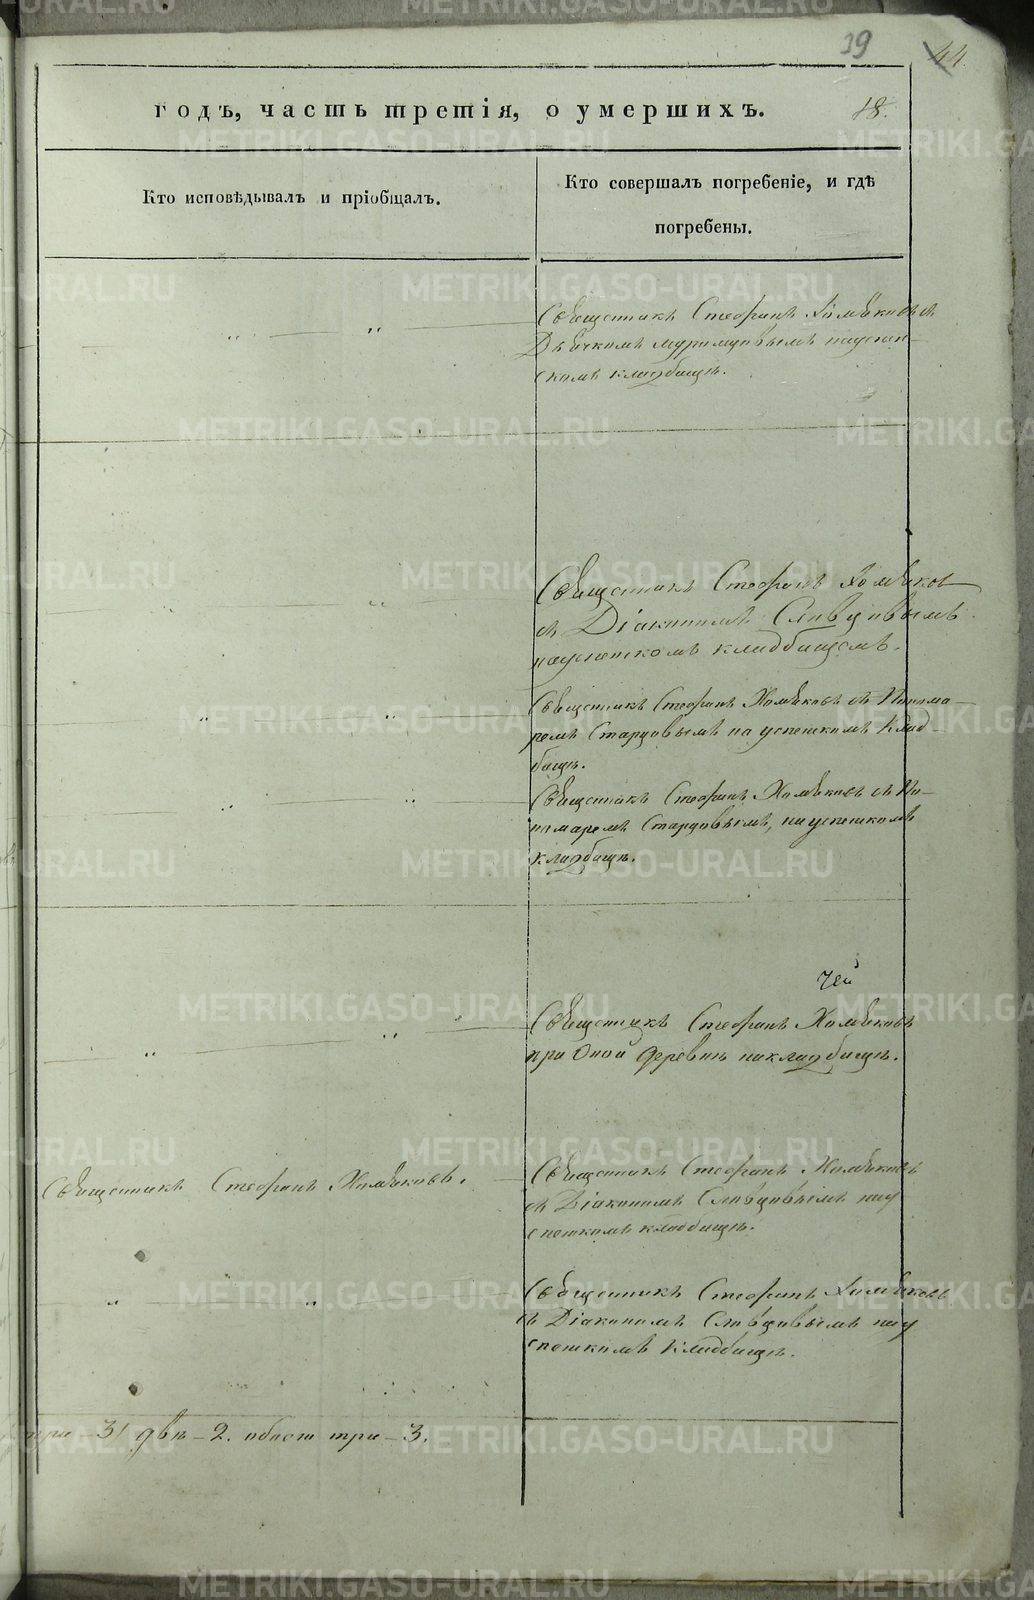 19
44
годъ, часть третія, о умершихъ.
18.
Кто исповѣдывалъ и пріобщалъ.
Кто совершалъ погребеніе, и гдѣ
погребены.
Священникъ Стефанъ Хомяковъ съ
на успен-
скомъ кладбищѣ.
Священникъ Стефанъ Хомяковъ
съ Діакономъ Словцовымъ
на успенскомъ кладбищемъ.
Священникъ Стефанъ Хомяковъ съ Понома-
ремъ Старцовымъ на успенскомъ клад-
бищѣ.
Священникъ Стефанъ Хомяковъ съ По-
номаремъ Старцовымъ, на успенскомъ
кладбищѣ.
чей
Священникъ Стефанъ Хомяковъ
при оной деревнѣ на кладбищѣ.
Священникъ Стефанъ Хомяковъ.
Священникъ Стефанъ Хомяковъ
съ Діакономъ Словцовымъ на у
спенскомъ кладбищѣ.
Священникъ Стефанъ Хомяковъ
съ Діакономъ Словцовымъ на у
спенскомъ кладбищѣ.
три - 3/ двѣ - 2. обоего три - 3.
METRIKI.GASO-URAL.RU